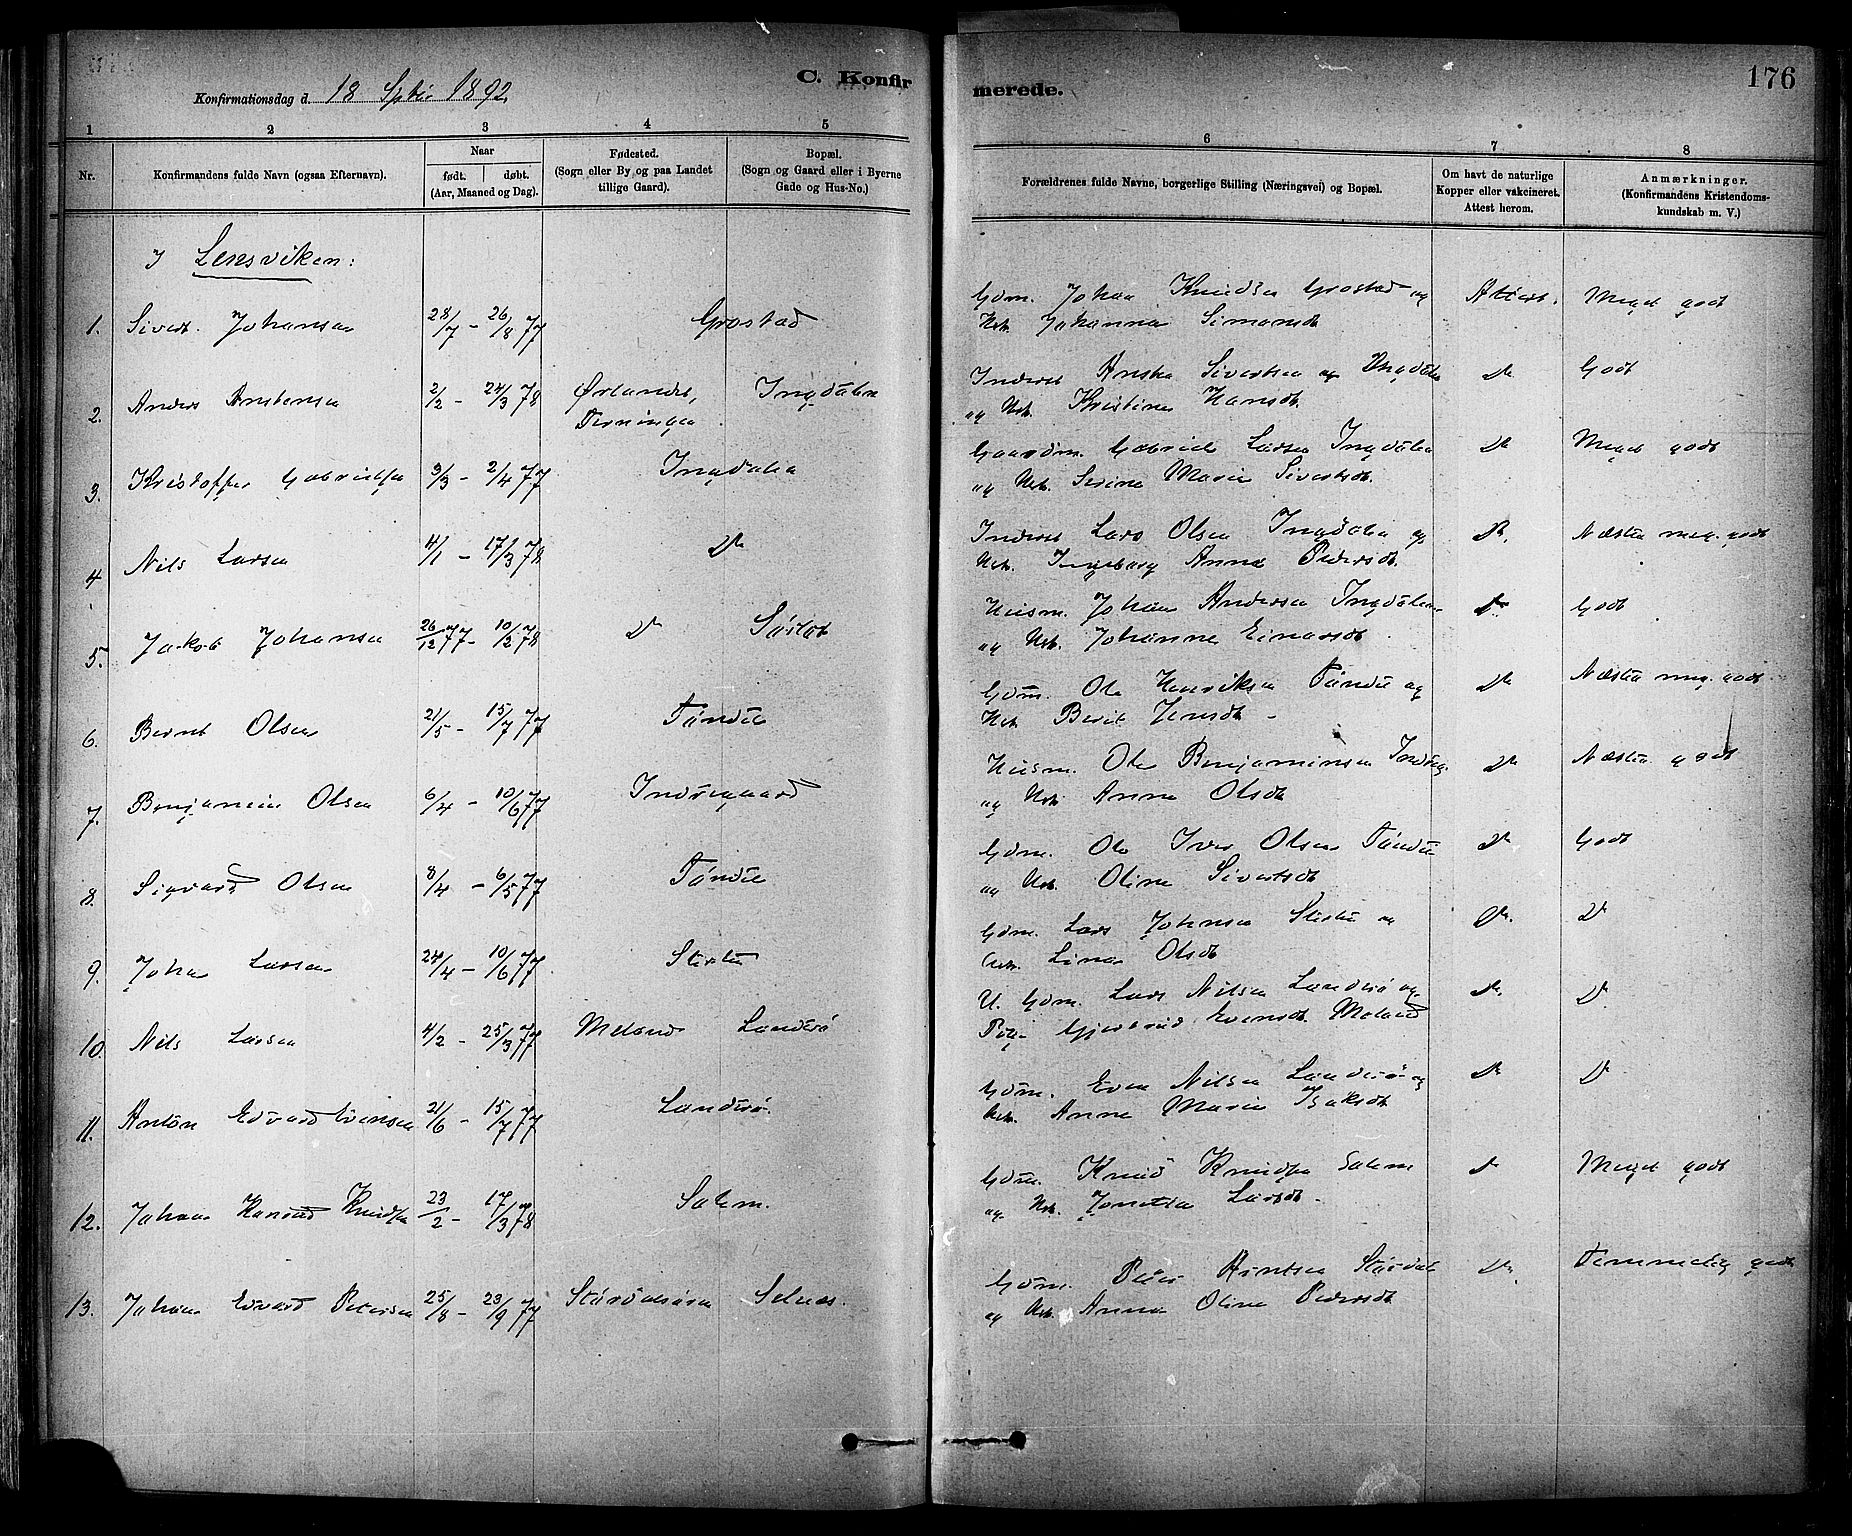 176
Konfirmationsdag d. 18 Septbr 1892.
C. Konfir merede.
1 2 3 4 5 6 7 8
Nr.
Konfirmandens fulde Navn (ogsaa Efternavn).
Naar
født. døbt.
(Aar, Maaned og Dag).
Fødested.
(Sogn eller By og paa Landet
tillige Gaard).
Bopæl.
(Sogn og Gaard eller i Byerne
Gade og Hus-No.)
Forældrenes fulde Navne, borgerlige Stilling (Næringsvei) og Bopæl.
Om havt de naturlige
Kopper eller vakcineret.
Attest herom.
Anmærkninger.
(Konfirmandens Kristendoms-
kundskab m. V.)
I Lensviken:
1. Sivert Johansen 28/7 - 26/8 77 Grostad Gdm. Johan Knudsen Grostad og Attest. Meget godt
Hst. Johanna Simonsdt.
2. Anders Anstensen 2/2 - 24/3 78 Ørlandet, Ingdalen Inderst Ansten Sivertsen Ingdalen Do Godt
og Hst. Kristine Hansdt.
3. Kristoffer Gabrielsen 3/3 - 2/4 77 Ingdalen Gaardm. Gabriel Larsen Ingdalen Do Meget godt
og Hst. Serine Marie Sivertsdt.
4 Nils Larsen 4/1 - 17/3 78 Do Inderst Lars Olsen Ingdalen og Do. Næsten meg. godt
Hst. Ingeborg Anna Pedersdt.
5. Jakob Johansen 26/12 77 - 10/2 78 Do Sørlet Husm. Johan Andersen Ingdalen Do Godt
og Hst. Johanne Einarsdt.
6. Bernt Olsen 21/5 - 15/7 77 Tøndel Gdm. Ole Henriksen Tøndel og Do Næsten meg. godt.
Hst. Berit Jensdt.
7. Benjamin Olsen 6/4 - 10/6 77 Indregaard Husm. Ole Benjaminsen Indreg. Do Næsten godt
og Hst. Anne Olsdt.
8. Sigvard Olsen 8/4 - 6/5 77 Tøndel Gdm. Ole Iver Olsen Tøndel Do Godt
og Hst. Oline Sivertsdt
9. Johan Larsen 24/4 - 10/6 77 Gdm. Lars Johnsen og Do. Do
Hst. Lina Olsdt
10. Nils Larsen 4/2 - 25/3 77 Meland Landrø U. Gdm. Lars Nilsen Landrø og Do. Do.
Pige Gjertrud Evensdt. Meland
11. Anton Edvard Evensen 21/6 - 15/7 77 Landrø. Gdm. Even Nilsen Landrø og Do Do
Hst. Anne Marie Isaksdt
12. Johan Konrad Knudsen 23/2 - 17/3 78 Selem. Gdm. Knud Knudsen Selem Do Meget godt
og Hst. Jonetta Larsdt.
13. Johan Edvard Petersen 25/8 - 23/9 77 Størdalsøren Selnes. Gdm. Peder Arntsen Størdal Do. Temmelig godt
og Hst. Anna Oline Pedersdt